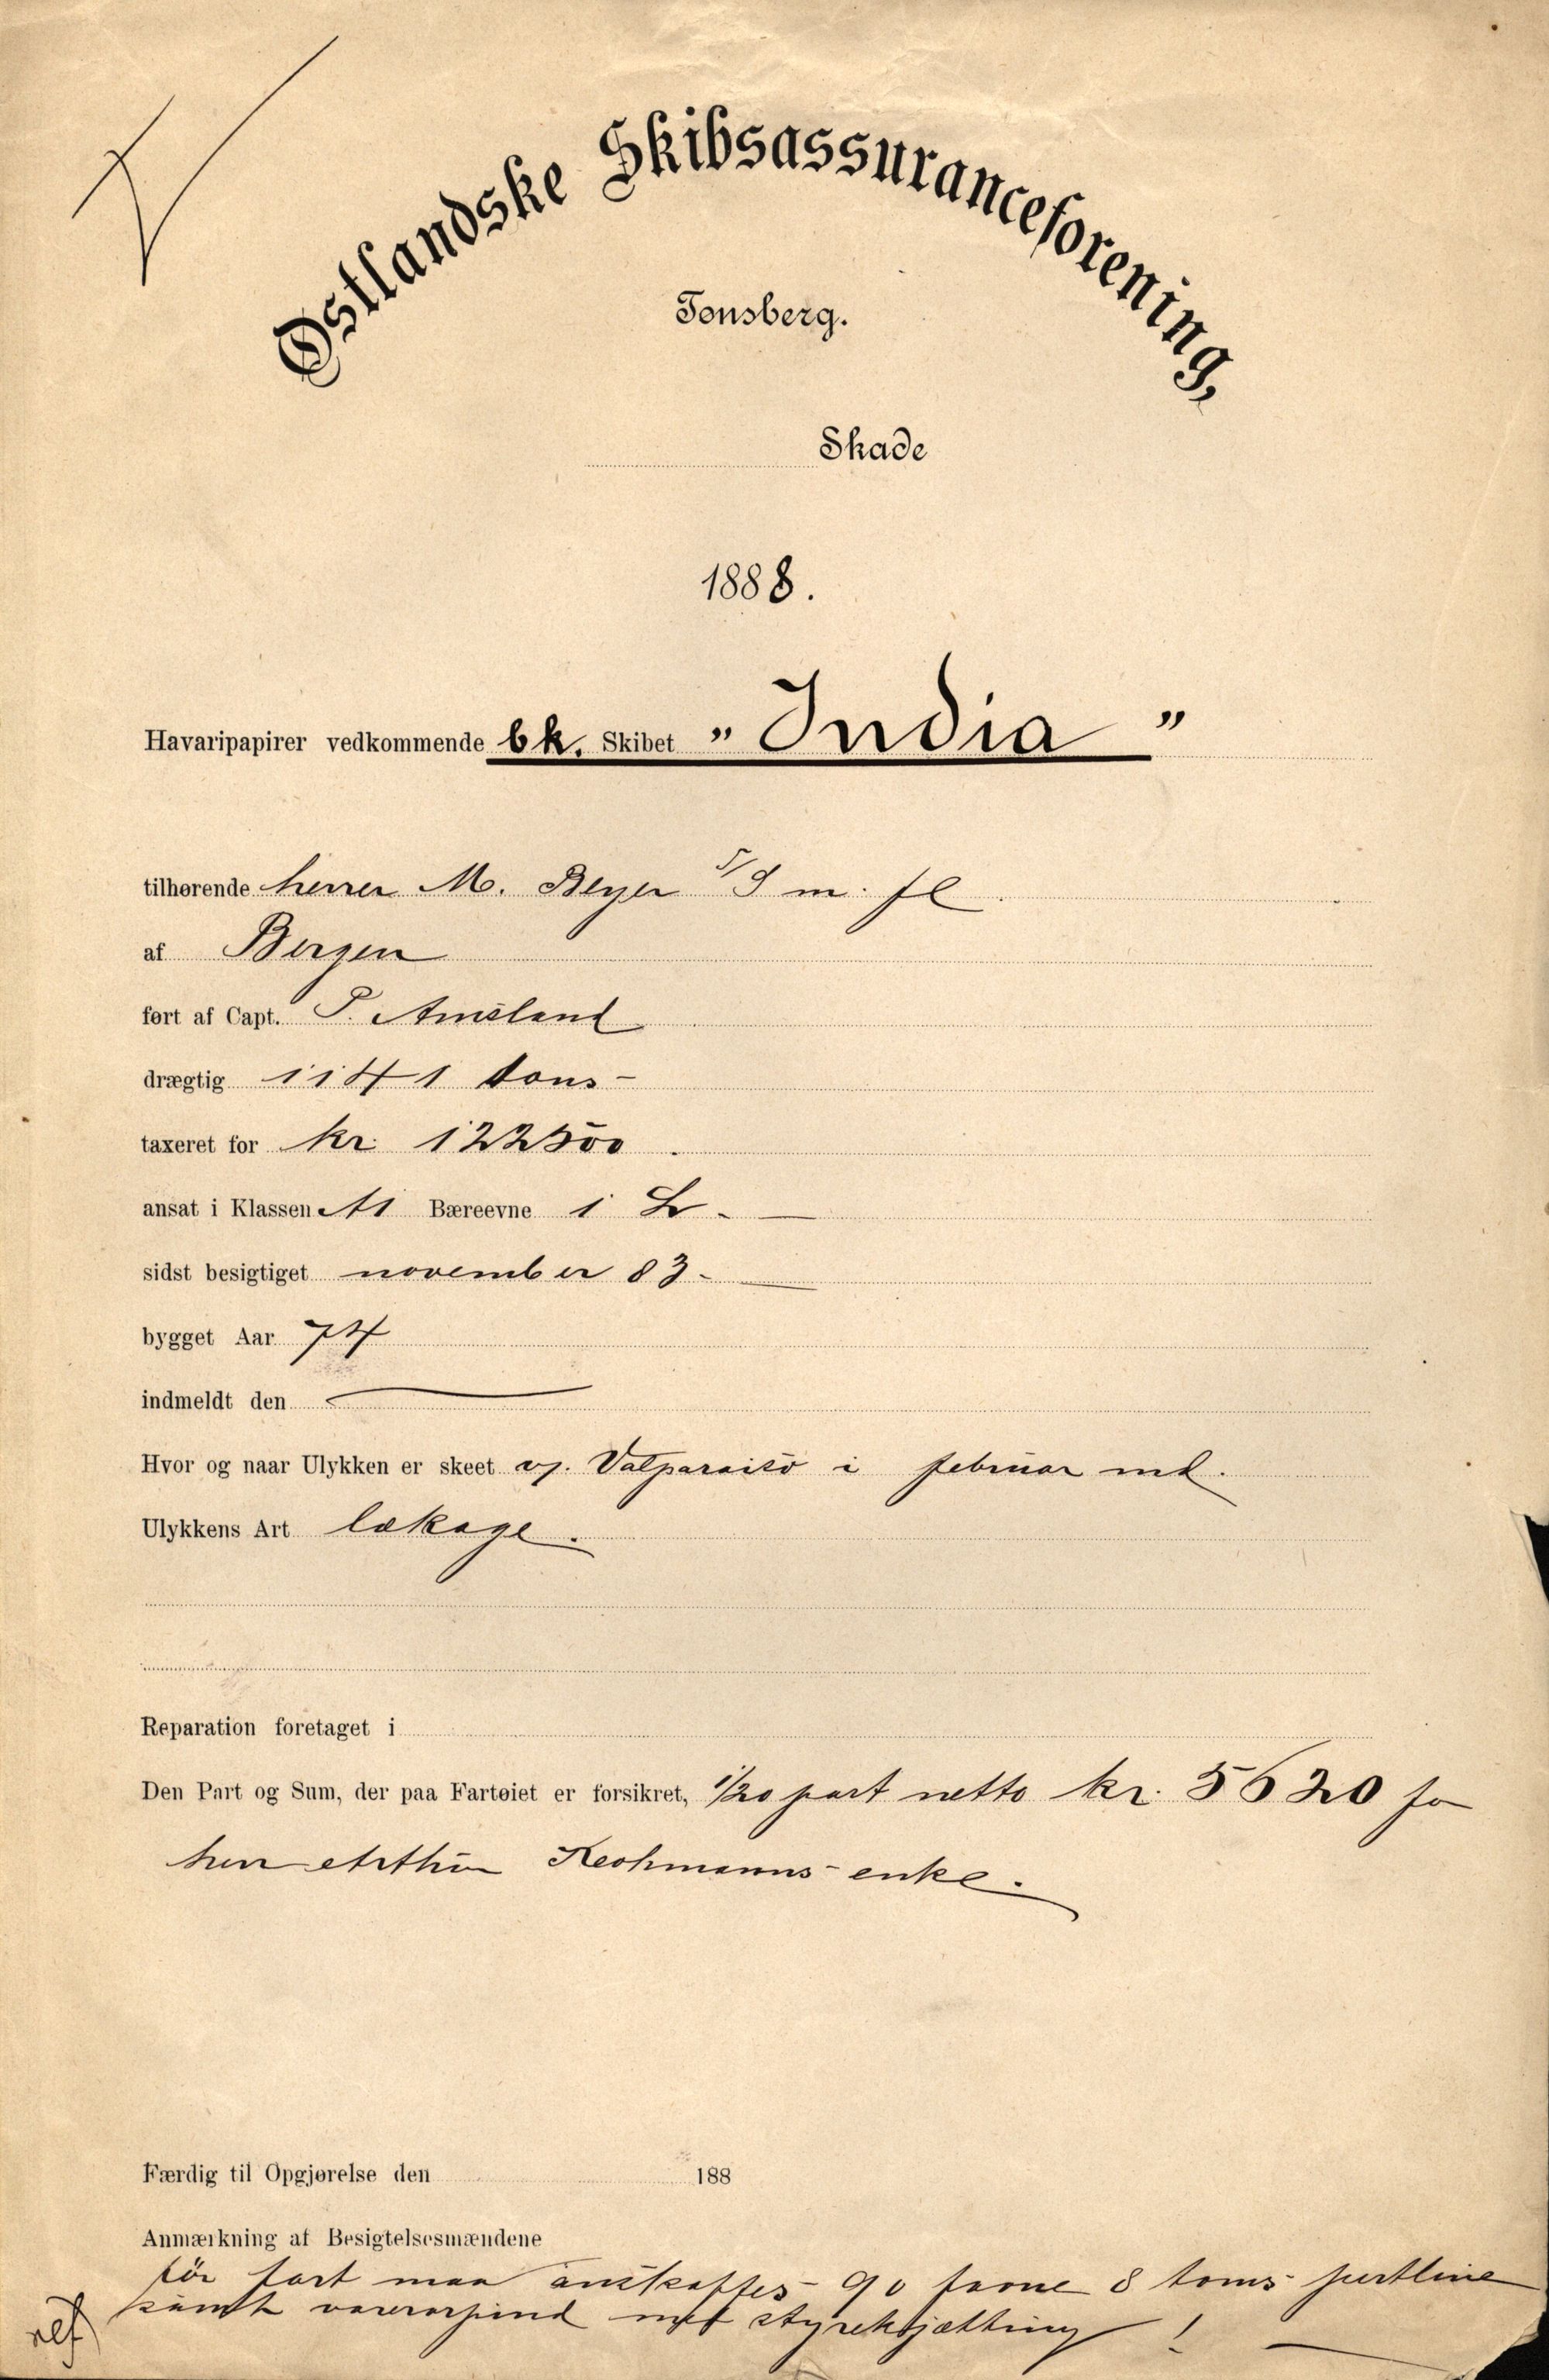 Østlandske Skibsassuranceforening,
Tønsberg.
Skade
1888.
Havaripapirer vedkommende bk. Skibet „ India ”
tilhørende herrer M. Beyer S/S m. fl.
af Bergen
ført af Capt. P. Amsland
drægtig 1141 tons
taxeret for kr. 122500.
ansat i Klassen A1 Bæreevne 1 L.
sidst besigtiget november 83.
bygget Aar 74
indmeldt den
Hvor og naar Ulykken er skeet Valparaiso i februar md.
Ulykkens Art lækage.
Reparation foretaget i
Den Part og Sum, der paa Fartøiet er forsikret, 1/20 part netto kr. 5620 for
herr Arthur enke.
Færdig til Opgjørelse den 188
Anmærkning af Besigtelsesmændene
før fart maa anskaffes 90 favne 8 toms pertline
samt styrekjætting !